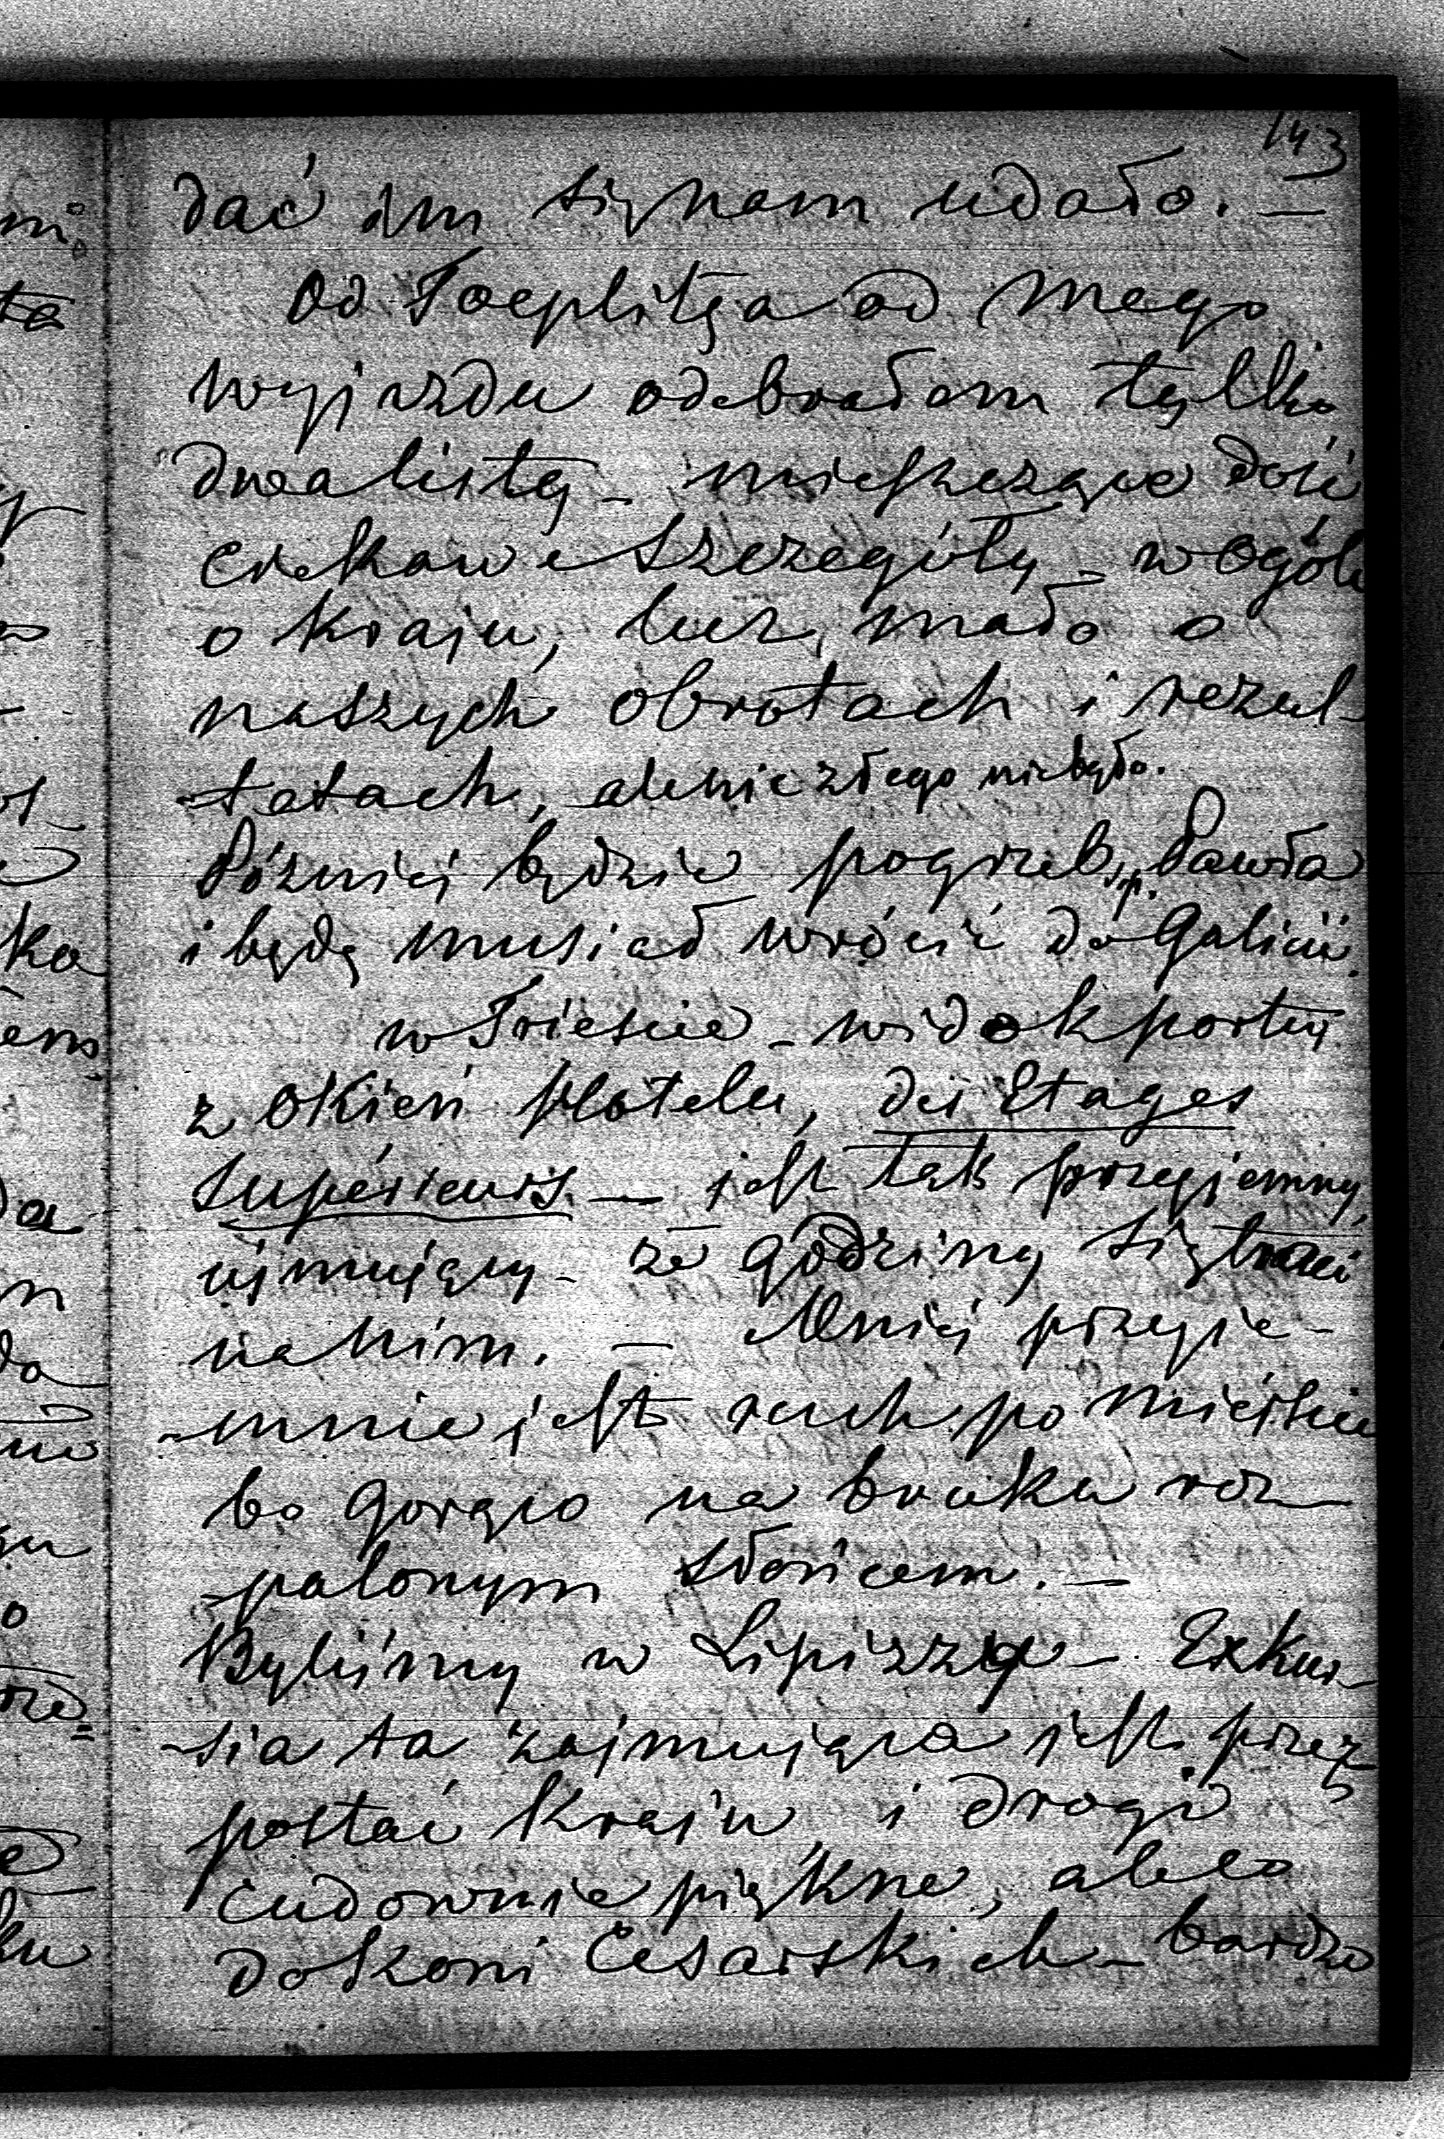 143
dać im się nam udało. —
Od Toeplitza od mego
wyjazdu odebrałem tylko
dwa listy – mieszczące dość
ciekawe szczegóły – w ogóle
o kraju, lecz mało o
naszych obrotach i rezul-
tatach, ale nic złego nie było.
Później będzie pogrzeb p. Pawła
i będę musiał wrócić do Galicii.
w Trieście – widok portu
z okień Hotelu, des Etages
supérieurs — jest tak przyjemny,
ujmujący – że godziny się traci
na nim. — Mniej przyje-
-mnie jest ruch po mieście
bo gorąco na bruku roz-
-palonym słońcem. —
Byliśmy w Lipizzy – Exkur-
-sia ta zajmująca jest przez
postać kraju i drogi
cudownie piękne, ale co
do koni Cesarskich – bardzo